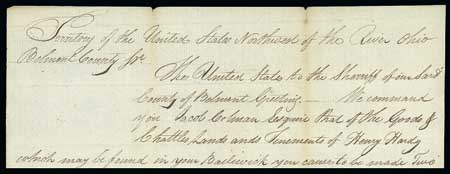 Territory of the United States Northwest of the River Ohio
Belmont County Ss
The United States to the Sherriff of our Said
County of Belmont Greeting — We command
you Jacob Coleman Esquire that of the Goods &
Chattles, Lands and Tenements of Henry Hardy
which may be found in your Bailewick you cause to be made Two